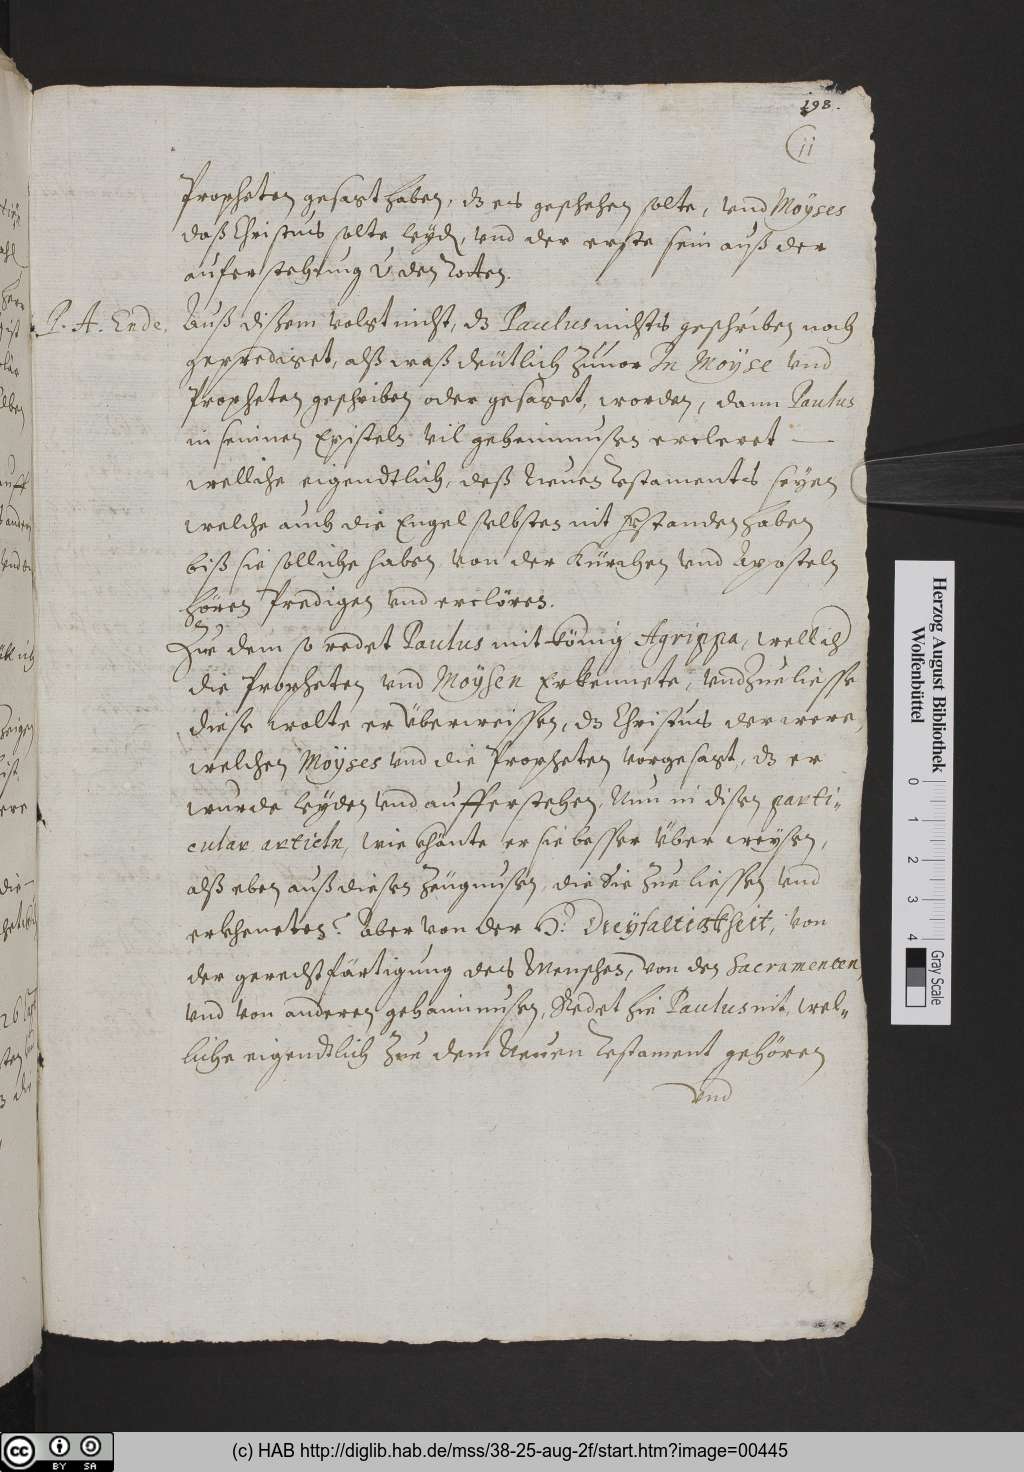 198.
11
Propheten gesagt haben, dz es geschehen solte, vnd Moÿses
daß Christus solte leÿdẽ, vnd der erste sein auß der
auferstehung v̈ den Todten.
P. A. Ende.
Auß disem volgt nicht, dz Paulus nichts geschriben noch
geprediget, alß waß deütlich zuuor In Moÿse vnd
Propheten geschriben oder gesaget, worden, dann Paulus
in seinen Episteln vil geheimnusen ercleret —
welliche eigendtlich, deß Neuen Testaments seÿen
welche auch die Engel selbsten nit verstanden haben
biß sie solliche haben von der Kürchen vnd Aposteln
hören Predigen vnd erclören.
Zue dem so redet Paulus mit könig Agrippa, wellich
die Propheten vnd Moÿsen Erkennete, vnd zue liesse
diese wolte er überweissen, dz Christus der were,
welchen Moÿses vnd die Propheten vorgesagt, dz er
wurde leÿden vnd aufferstehen, Nun in disen parti-
cular articln, wie khönte er sie besser über weÿsen,
alß eben auß diesen zeügnusen, die Sie zue liessen vnd
erkheneten? Aber von der H. Dreÿfaltigkheit, von
der gerechtfärtigung des Menschen, von den Sacramenten
vnd von anderen gehaimnusen, Redet hie Paulus nit, wel-
liche eigendtlich zue dem Neuen Testament gehören
vnd
Herzog August Bibliothek
Wolfenbüttel
0 1 2 3 4
Gray Scale
(c) HAB http://diglib.hab.de/mss/38-25-aug-2f/start.htm?image=00445
cc BY SA